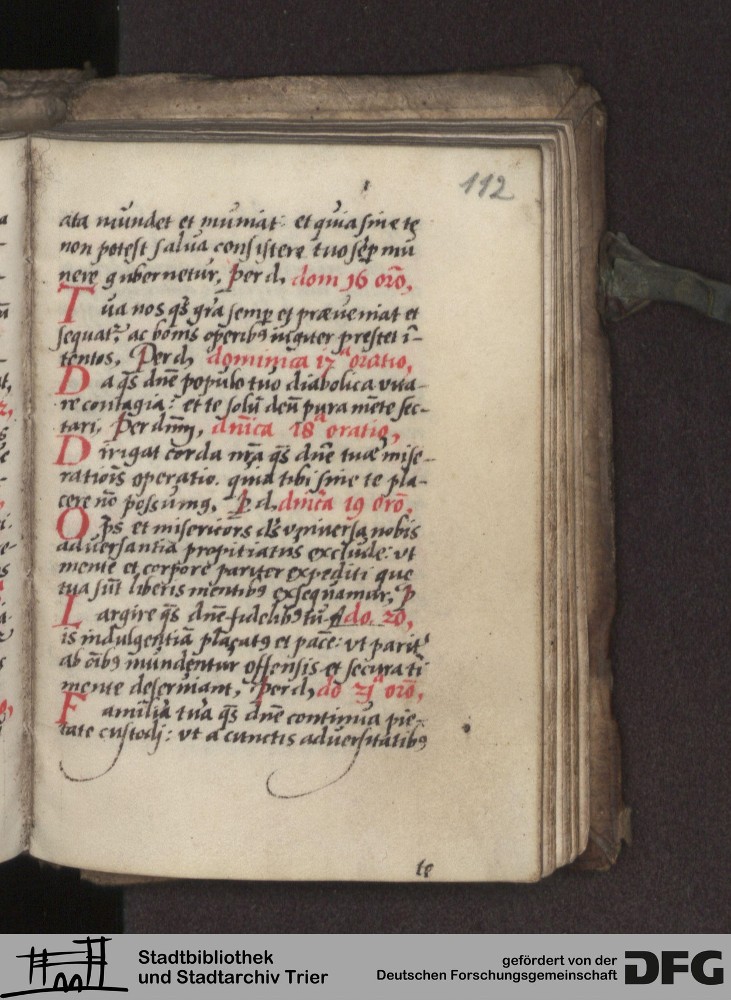 112
ata mundet et muniat: et quia sine te
non potest salua consistere tuo sēp mu
nere gubernetur, Per d, dom 16 orō,
Tua nos q̄s grā semp et præueniat et
sequatr, ac bonis operibꝯ iugiter prestet ī-
tentos, Per d, dominica 17ᵃ oratio,
Da q̄s dnē populo tuo diabolica vita-
re contagia: et te solū deū pura mēte sec-
tari, Per dnm, dnīca 18ᵃ oratio,
Dirigat corda nrā q̄s dnē tuæ mise-
rationis operatio. quia tibi sine te pla-
cere nō possumꝯ, P d, dnīca 19 orō,
Op̄s et misericors ds̄ vniuersa nobis
aduersantia propitiatus exclude: vt
mente et corpore pariter expediti que
tua sūt liberis mentibꝯ exsequamur, P
Largire q̄s dnē fidelibꝯ tu- do 20,
is indulgentiā placatꝯ et pacē: vt parit'
ab oībꝯ mundentur offensis et secura ti
mente deseruiant, Per d, do 21ᵃ orō,
Familiā tuā q̄s dnē continua pie-
tate custodi: vt a cunctis aduersitatibꝯ
te
Stadtbibliothek
und Stadtarchiv Trier
gefördert von der
Deutschen Forschungsgemeinschaft
DFG